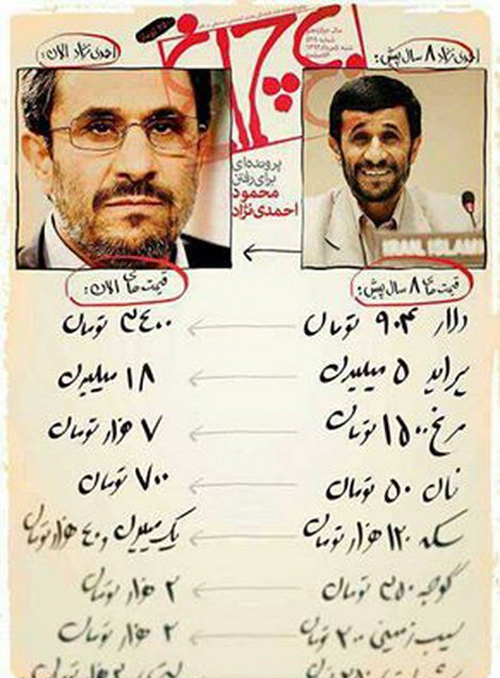 احمدی نژاد ۸ سال پیش:
احمدی نژاد الان:
چلچراغ
پرونده‌ای
برای رفتن
محمود
احمدی‌نژاد
IRAN ISLAMI
قیمت های ۸ سال پیش:
قیمت های الان:
دلار ۹۰۴ تومان ← ۳۴۰۰ تومان
پراید ۵ میلیون ← ۱۸ میلیون
مرغ ۱۵۰۰ تومان ← ۷ هزار تومان
نان ۵۰ تومان ← ۷۰۰ تومان
سکه ۱۲۰ هزار تومان ← یک میلیون و ۴۰ هزار تومان
گوجه ۳۵۰ تومان ← ۲ هزار تومان
سیب زمینی ۳۰۰ تومان ← ۲ هزار تومان